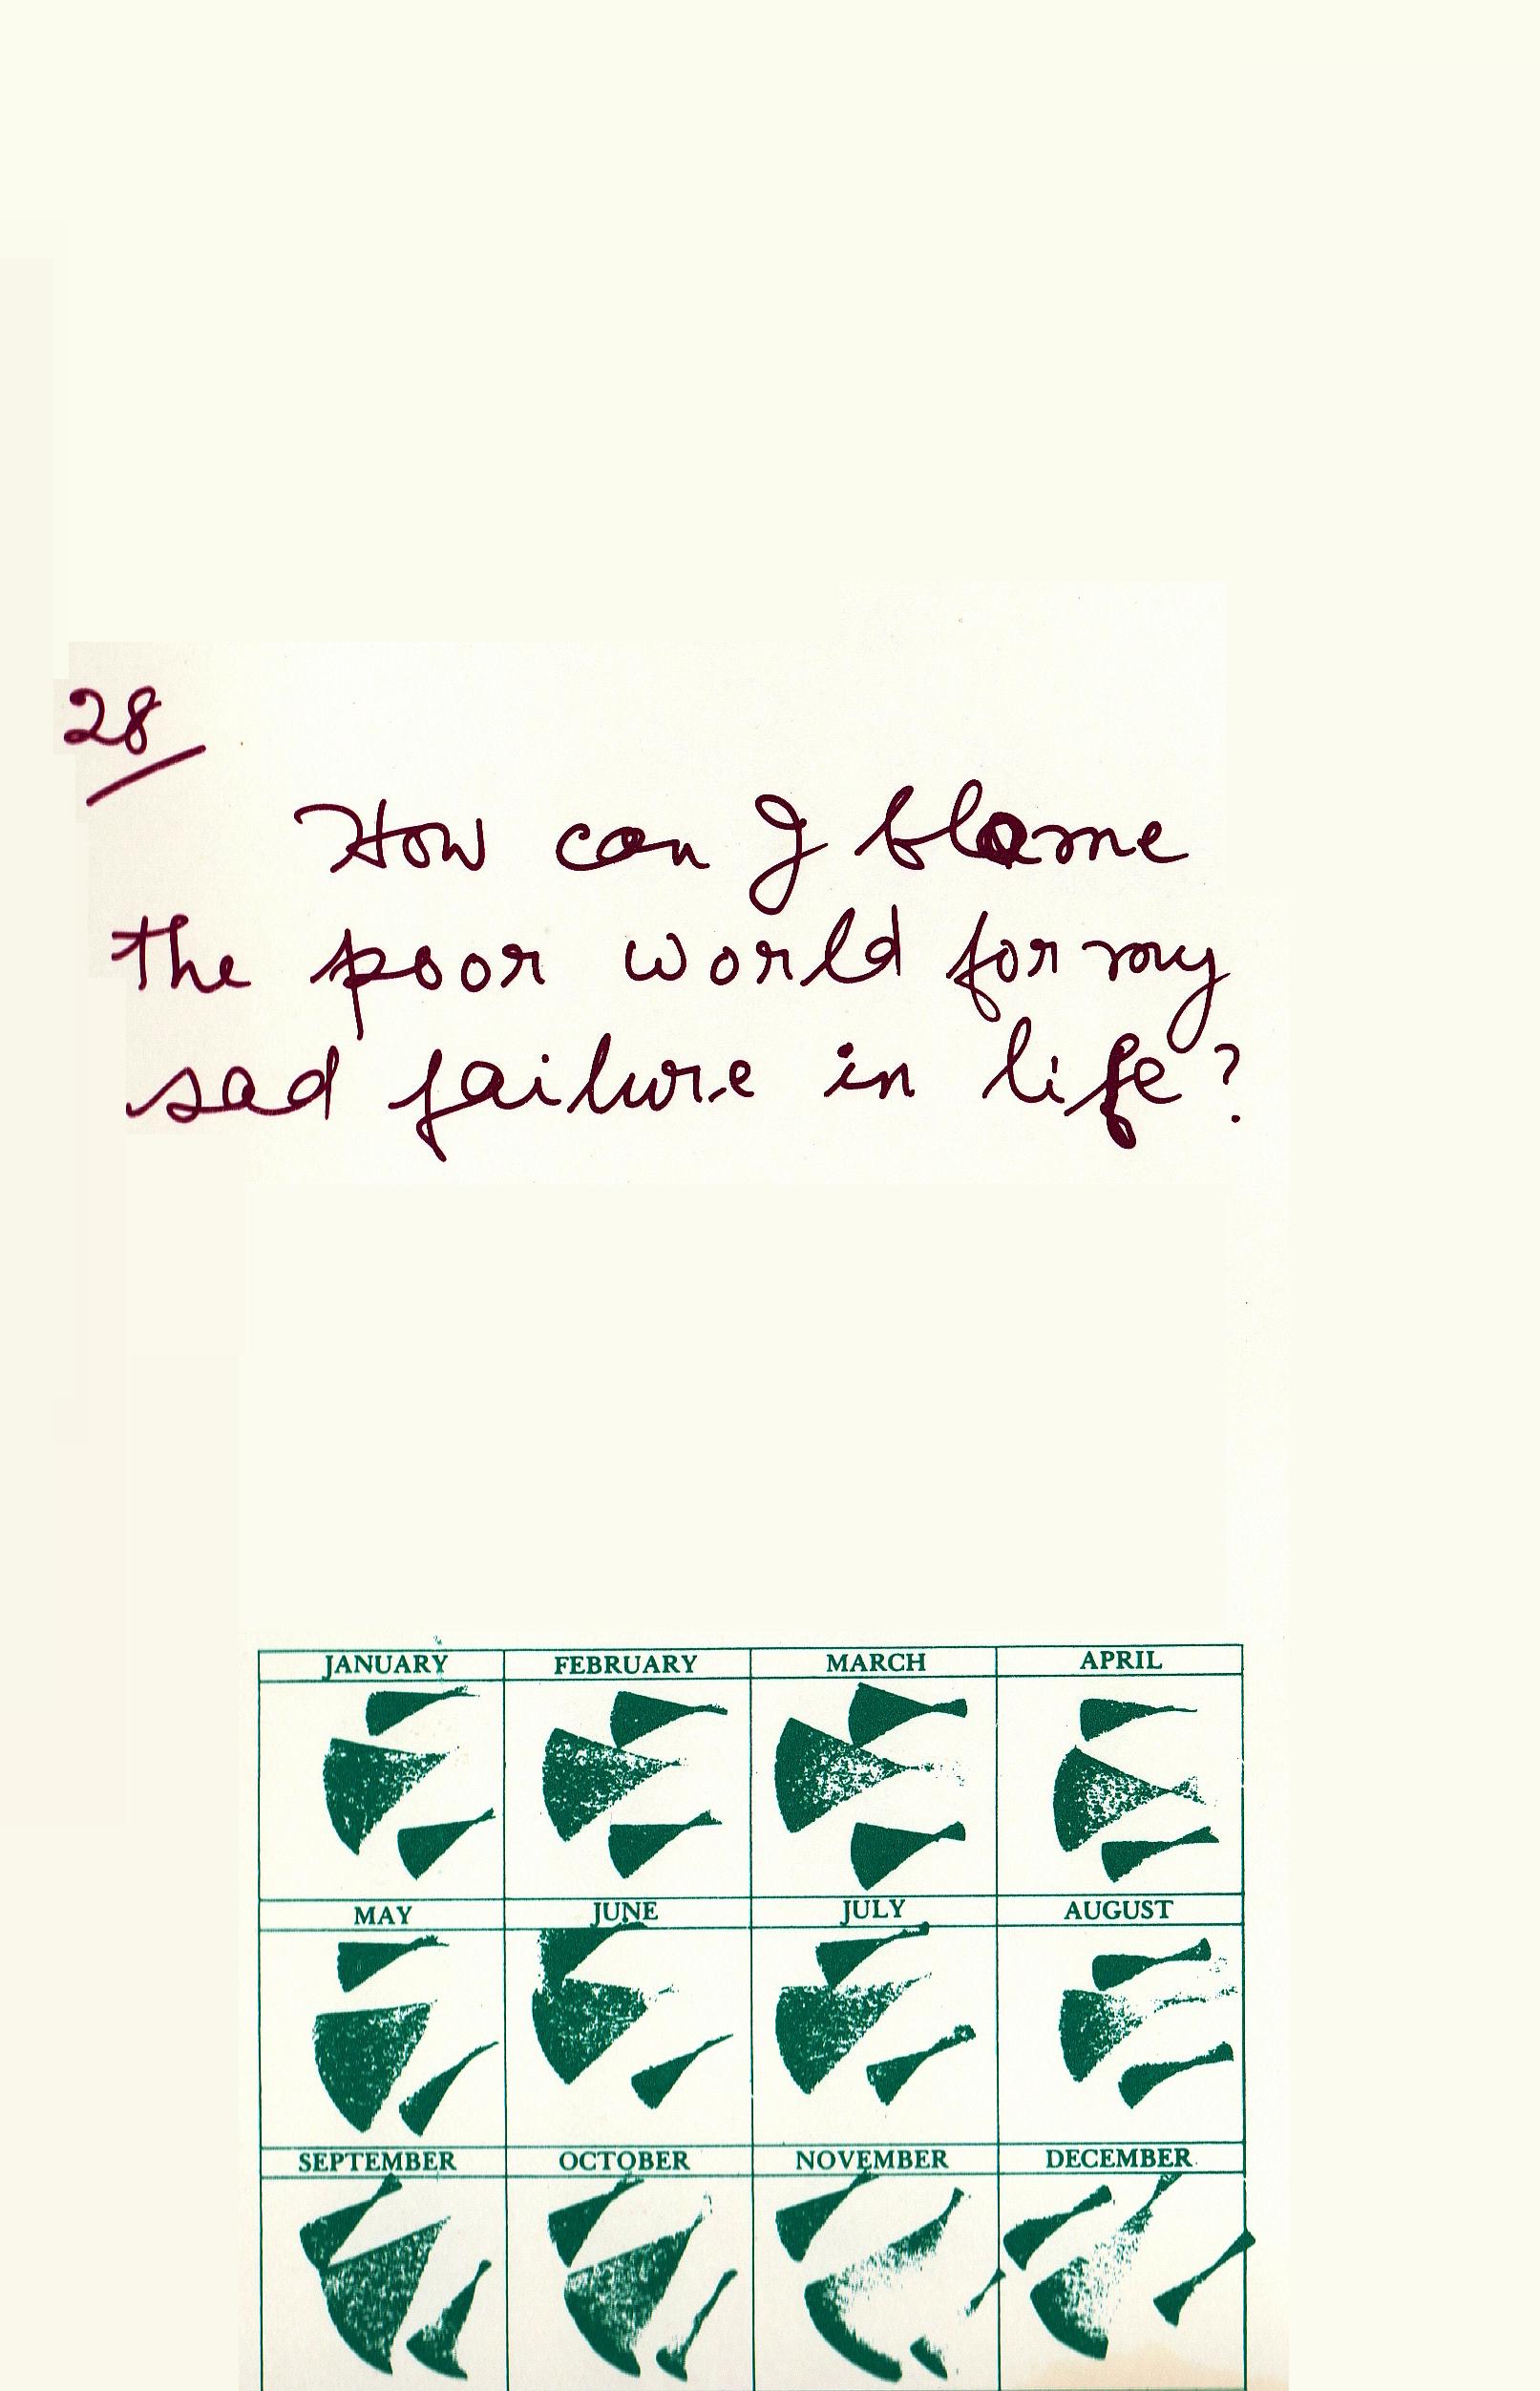 28
How can I blame
the poor world for my
sad failure in life?
JANUARY FEBRUARY MARCH APRIL
MAY JUNE JULY AUGUST
SEPTEMBER OCTOBER NOVEMBER DECEMBER